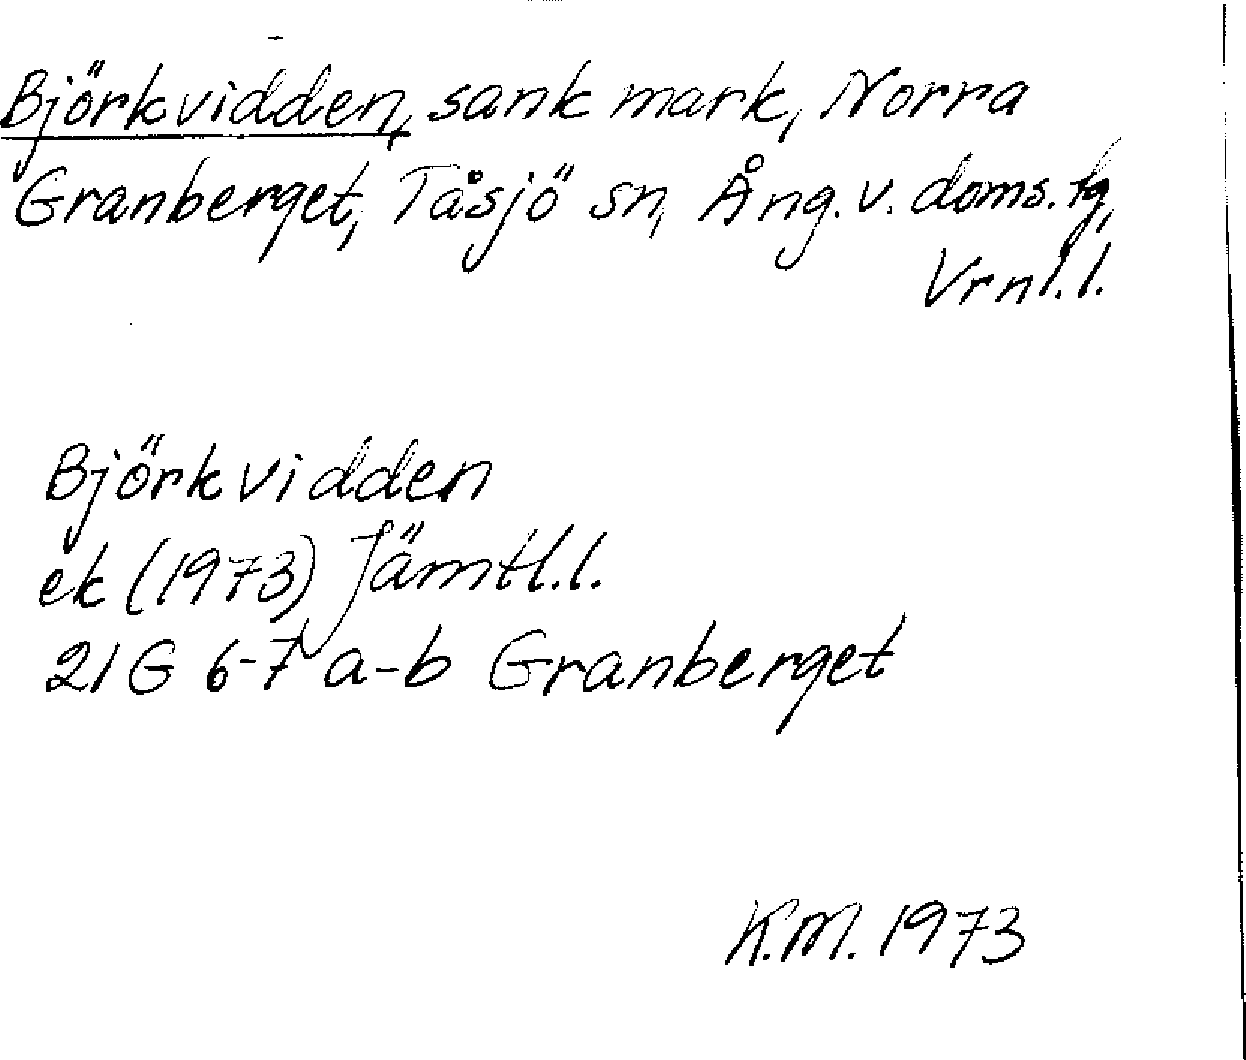 Björkvidden, sank mark, Norra
Granberget, Tåsjö sn, Ång. v. doms. tg,
Vrnl. l.
Björkvidden
ek (1973) Jämtl. l.
21G 6-7 a-b Granberget
K.M. 1973